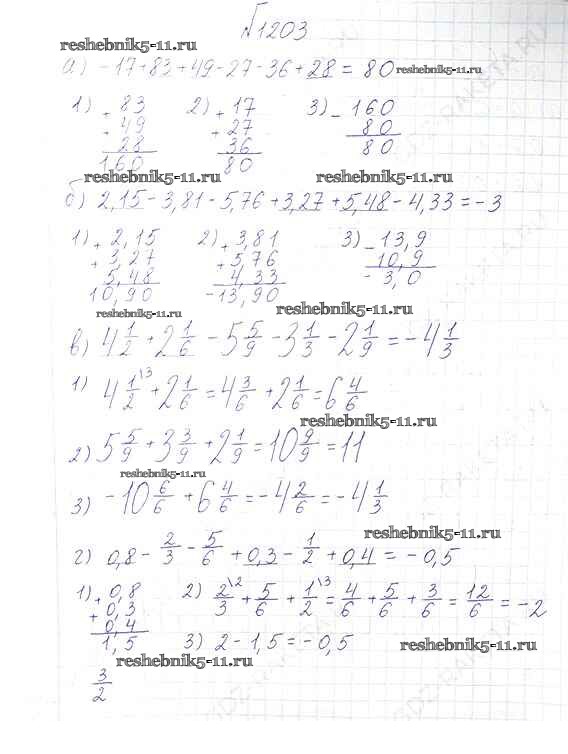 №1203
reshebnik5-11.ru
а) -17+83+49-27-36+28=80 reshebnik5-11.ru
1) + 83 2) + 17 3) - 160
+ 49 + 27 80
28 36 80
160 80
reshebnik5-11.ru reshebnik5-11.ru
б) 2,15-3,81-5,76+3,27+5,48-4,33=-3
1) + 2,15 2) + 3,81 3) - 13,9
+ 3,27 + 5,76 10,9
5,48 4,33 - 3,0
10,90 -13,90
reshebnik5-11.ru reshebnik5-11.ru
в) 4 1/2 + 2 1/6 - 5 5/9 - 3 1/3 - 2 1/9 = -4 1/3
1) 4 1/2 \3 + 2 1/6 = 4 3/6 + 2 1/6 = 6 4/6
reshebnik5-11.ru
2) 5 5/9 + 3 3/9 + 2 1/9 = 10 9/9 = 11
reshebnik5-11.ru
3) -10 6/6 + 6 4/6 = -4 2/6 = -4 1/3
reshebnik5-11.ru
г) 0,8 - 2/3 - 5/6 + 0,3 - 1/2 + 0,4 = -0,5
1) + 0,8 2) 2/3 \2 + 5/6 + 1/2 \3 = 4/6 + 5/6 + 3/6 = 12/6 = -2
+ 0,3
0,4
1,5 3) 2-1,5=-0,5 reshebnik5-11.ru
reshebnik5-11.ru
3/2